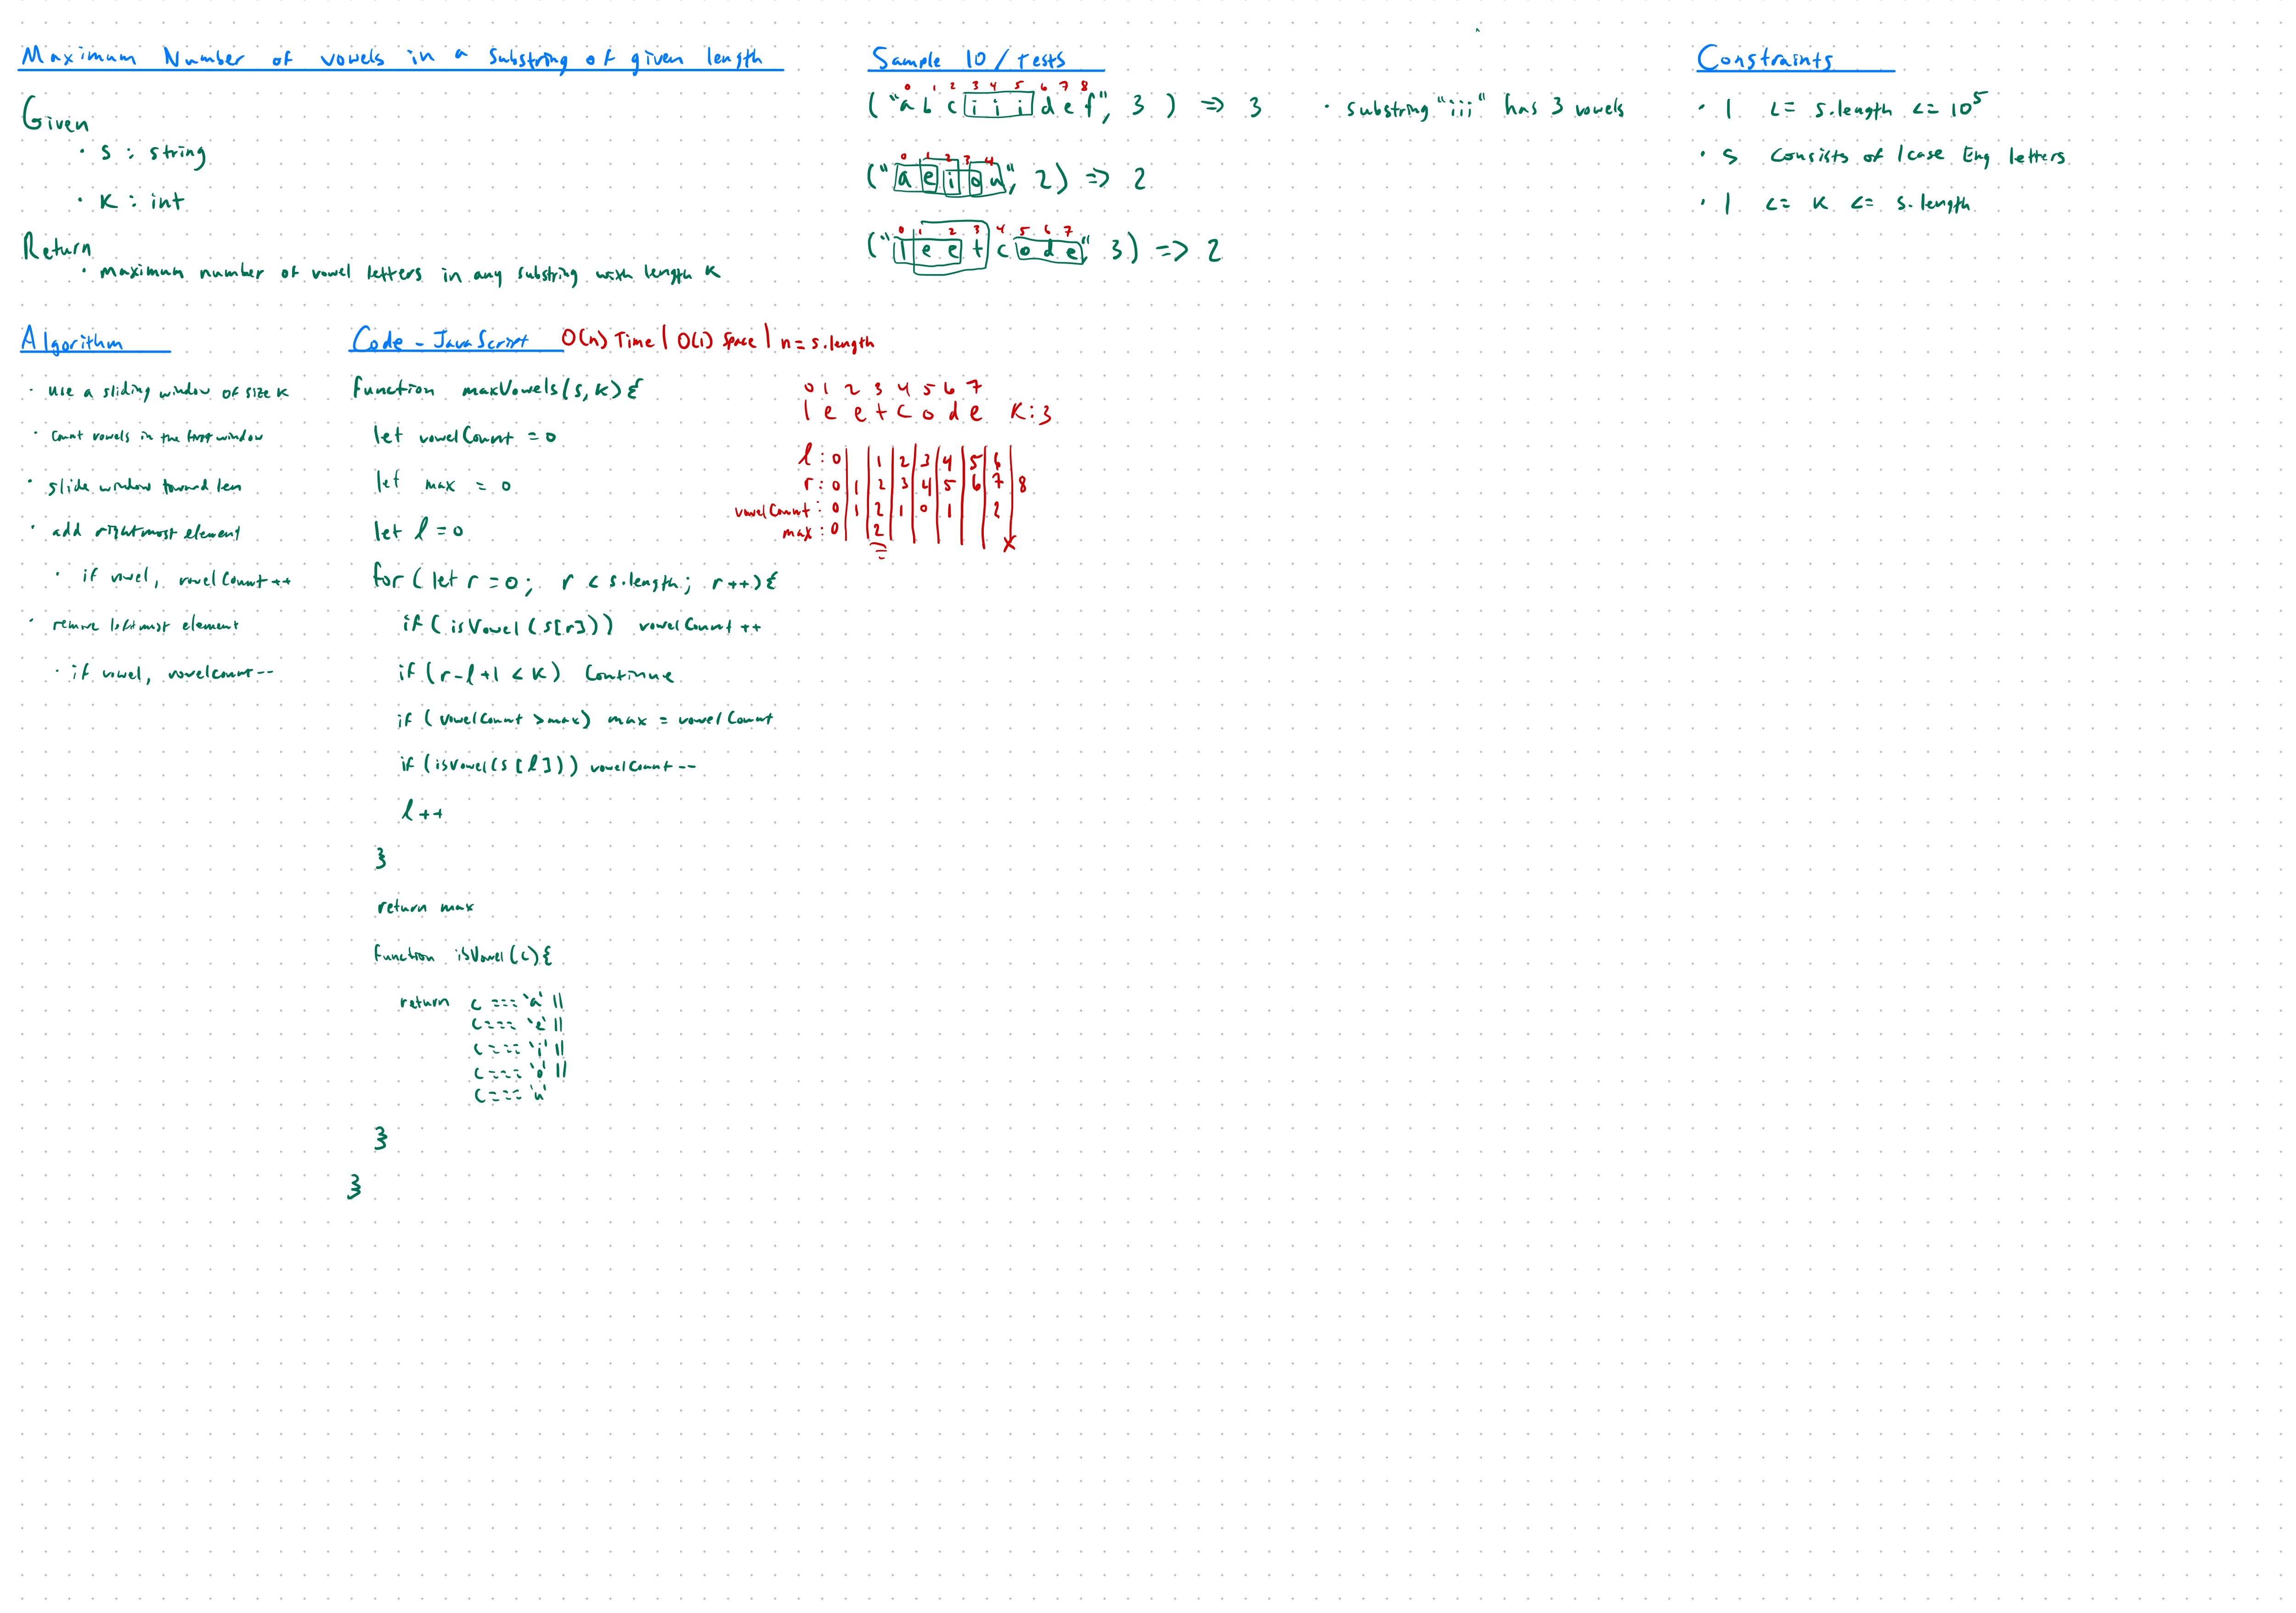 Maximum Number of vowels in a substring of given length
Given
· s : string
· K : int
Return
· maximum number of vowel letters in any substring with length K
Sample IO / tests
0 1 2 3 4 5 6 7 8
("abciiidef", 3 ) => 3 · substring "iii" has 3 vowels
0 1 2 3 4
("aeiou", 2) => 2
0 1 2 3 4 5 6 7
("leetcode" 3) => 2
Constraints
· 1 <= s.length <= 10^5
· s consists of lcase Eng letters
· 1 <= K <= s.length
Algorithm
· use a sliding window of size K
· count vowels in the first window
· slide window toward len
· add rightmost element
· if vowel, vowelCount++
· remove leftmost element
· if vowel, vowelcount--
Code - JavaScript O(n) Time | O(1) Space | n = s.length
function maxVowels(s, K) {
let vowelCount = 0
let max = 0
let l = 0
for (let r = 0; r < s.length; r++) {
if (isVowel(s[r])) vowelCount++
if (r-l+1 < K) continue
if (vowelCount > max) max = vowelCount
if (isVowel(s[l])) vowelCount--
l++
}
return max
function isVowel(c) {
return c === 'a' ||
c === 'e' ||
c === 'i' ||
c === 'o' ||
c === 'u'
}
}
0 1 2 3 4 5 6 7
l e e t c o d e K:3
l : 0 | | 1 | 2 | 3 | 4 | 5 | 6 |
r : 0 | 1 | 2 | 3 | 4 | 5 | 6 | 7 | 8
vowelCount : 0 | 1 | 2 | 1 | 0 | 1 | | 2 |
max : 0 | | 2 | | | | | | x